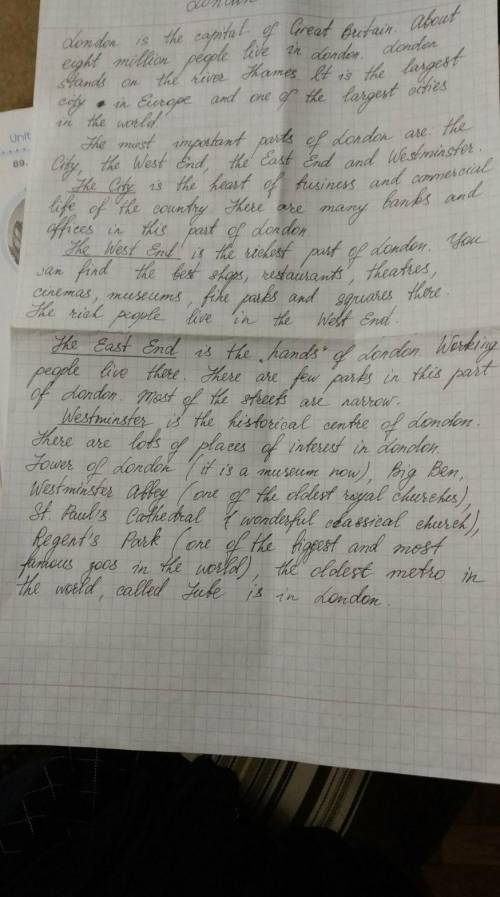 London
London is the capital of Great Britain. About
eight million people live in London. London
stands on the river Thames. It is the largest
city in Europe and one of the largest cities
in the world
The most important parts of London are: the
City, the West End, the East End and Westminster.
The City is the heart of business and commercial
life of the country. There are many banks and
offices in this part of London.
The West End is the richest part of London. You
can find the best shops, restaurants, theatres,
cinemas, museums, fine parks and squares there.
The rich people live in the West End.
The East End is the "hands" of London. Working
people live there. There are few parks in this part
of London. Most of the streets are narrow.
Westminster is the historical centre of London.
There are lots of places of interest in London.
Tower of London (it is a museum now), Big Ben,
Westminster Abbey (one of the oldest royal churches),
St. Paul's Cathedral (wonderful classical church),
Regent's Park (one of the biggest and most
famous zoos in the world), the oldest metro in
the world, called Tube is in London.
Unit
89.